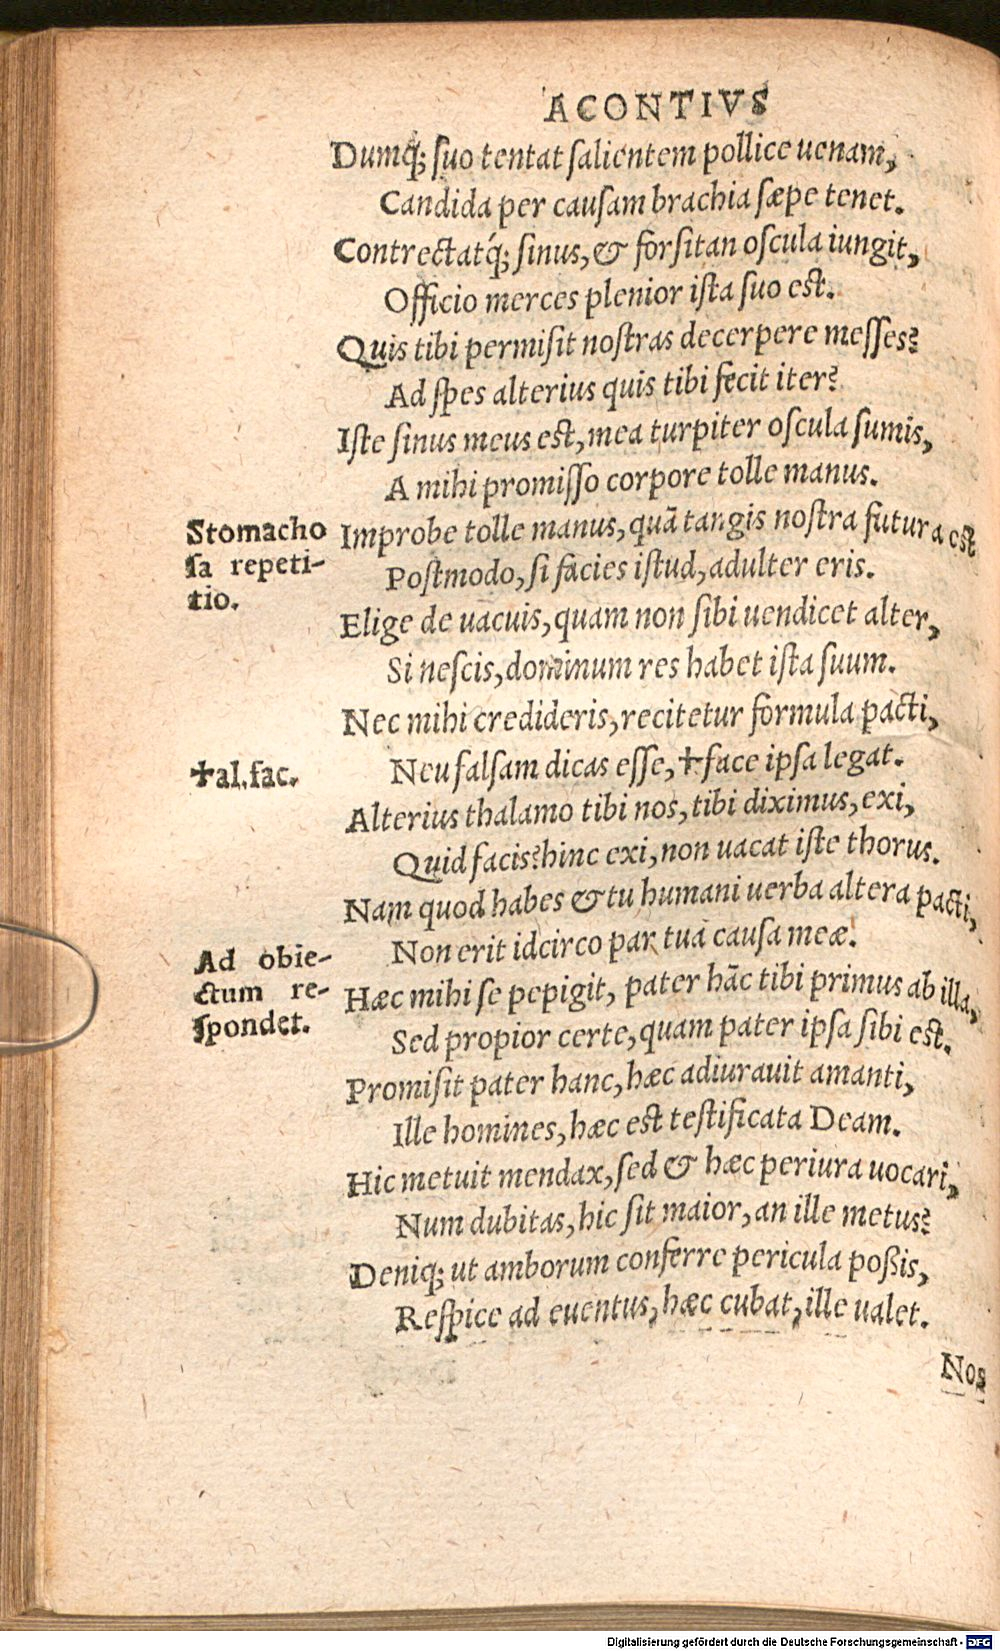 ACONTIVS
Dumq́; ſuo tentat ſalientem pollice uenam,
Candida per cauſam brachia ſæpe tenet.
Contrectatq́; ſinus, & forſitan oſcula iungit,
Officio merces plenior iſta ſuo eſt.
Quis tibi permiſit noſtras decerpere meſſes?
Ad ſpes alterius quis tibi fecit iter?
Iſte ſinus meus eſt, mea turpiter oſcula ſumis,
A mihi promiſſo corpore tolle manus.
Improbe tolle manus, quā tangis noſtra futura eſt
Poſtmodo, ſi facies iſtud, adulter eris.
Elige de uacuis, quam non ſibi uendicet alter,
Si neſcis, dominum res habet iſta ſuum.
Nec mihi credideris, recitetur formula pacti,
Neu falſam dicas eſſe, ✝face ipſa legat.
Alterius thalamo tibi nos, tibi diximus, exi,
Quid facis? hinc exi, non uacat iſte thorus.
Nam quod habes & tu humani uerba altera pacti,
Non erit idcirco par tua cauſa meæ.
Hæc mihi ſe pepigit, pater hāc tibi primus ab illa,
Sed propior certe, quam pater ipſa ſibi eſt.
Promiſit pater hanc, hæc adiurauit amanti,
Ille homines, hæc eſt teſtificata Deam.
Hic metuit mendax, ſed & hæc periura uocari,
Num dubitas, hic ſit maior, an ille metus?
Deniq; ut amborum conferre pericula poßis,
Reſpice ad euentus, hæc cubat, ille ualet.
Nos
Stomacho
ſa repeti-
tio.
✝al. fac.
Ad obie-
ctum re-
ſpondet.
Digitalisierung gefördert durch die Deutsche Forschungsgemeinschaft - DFG